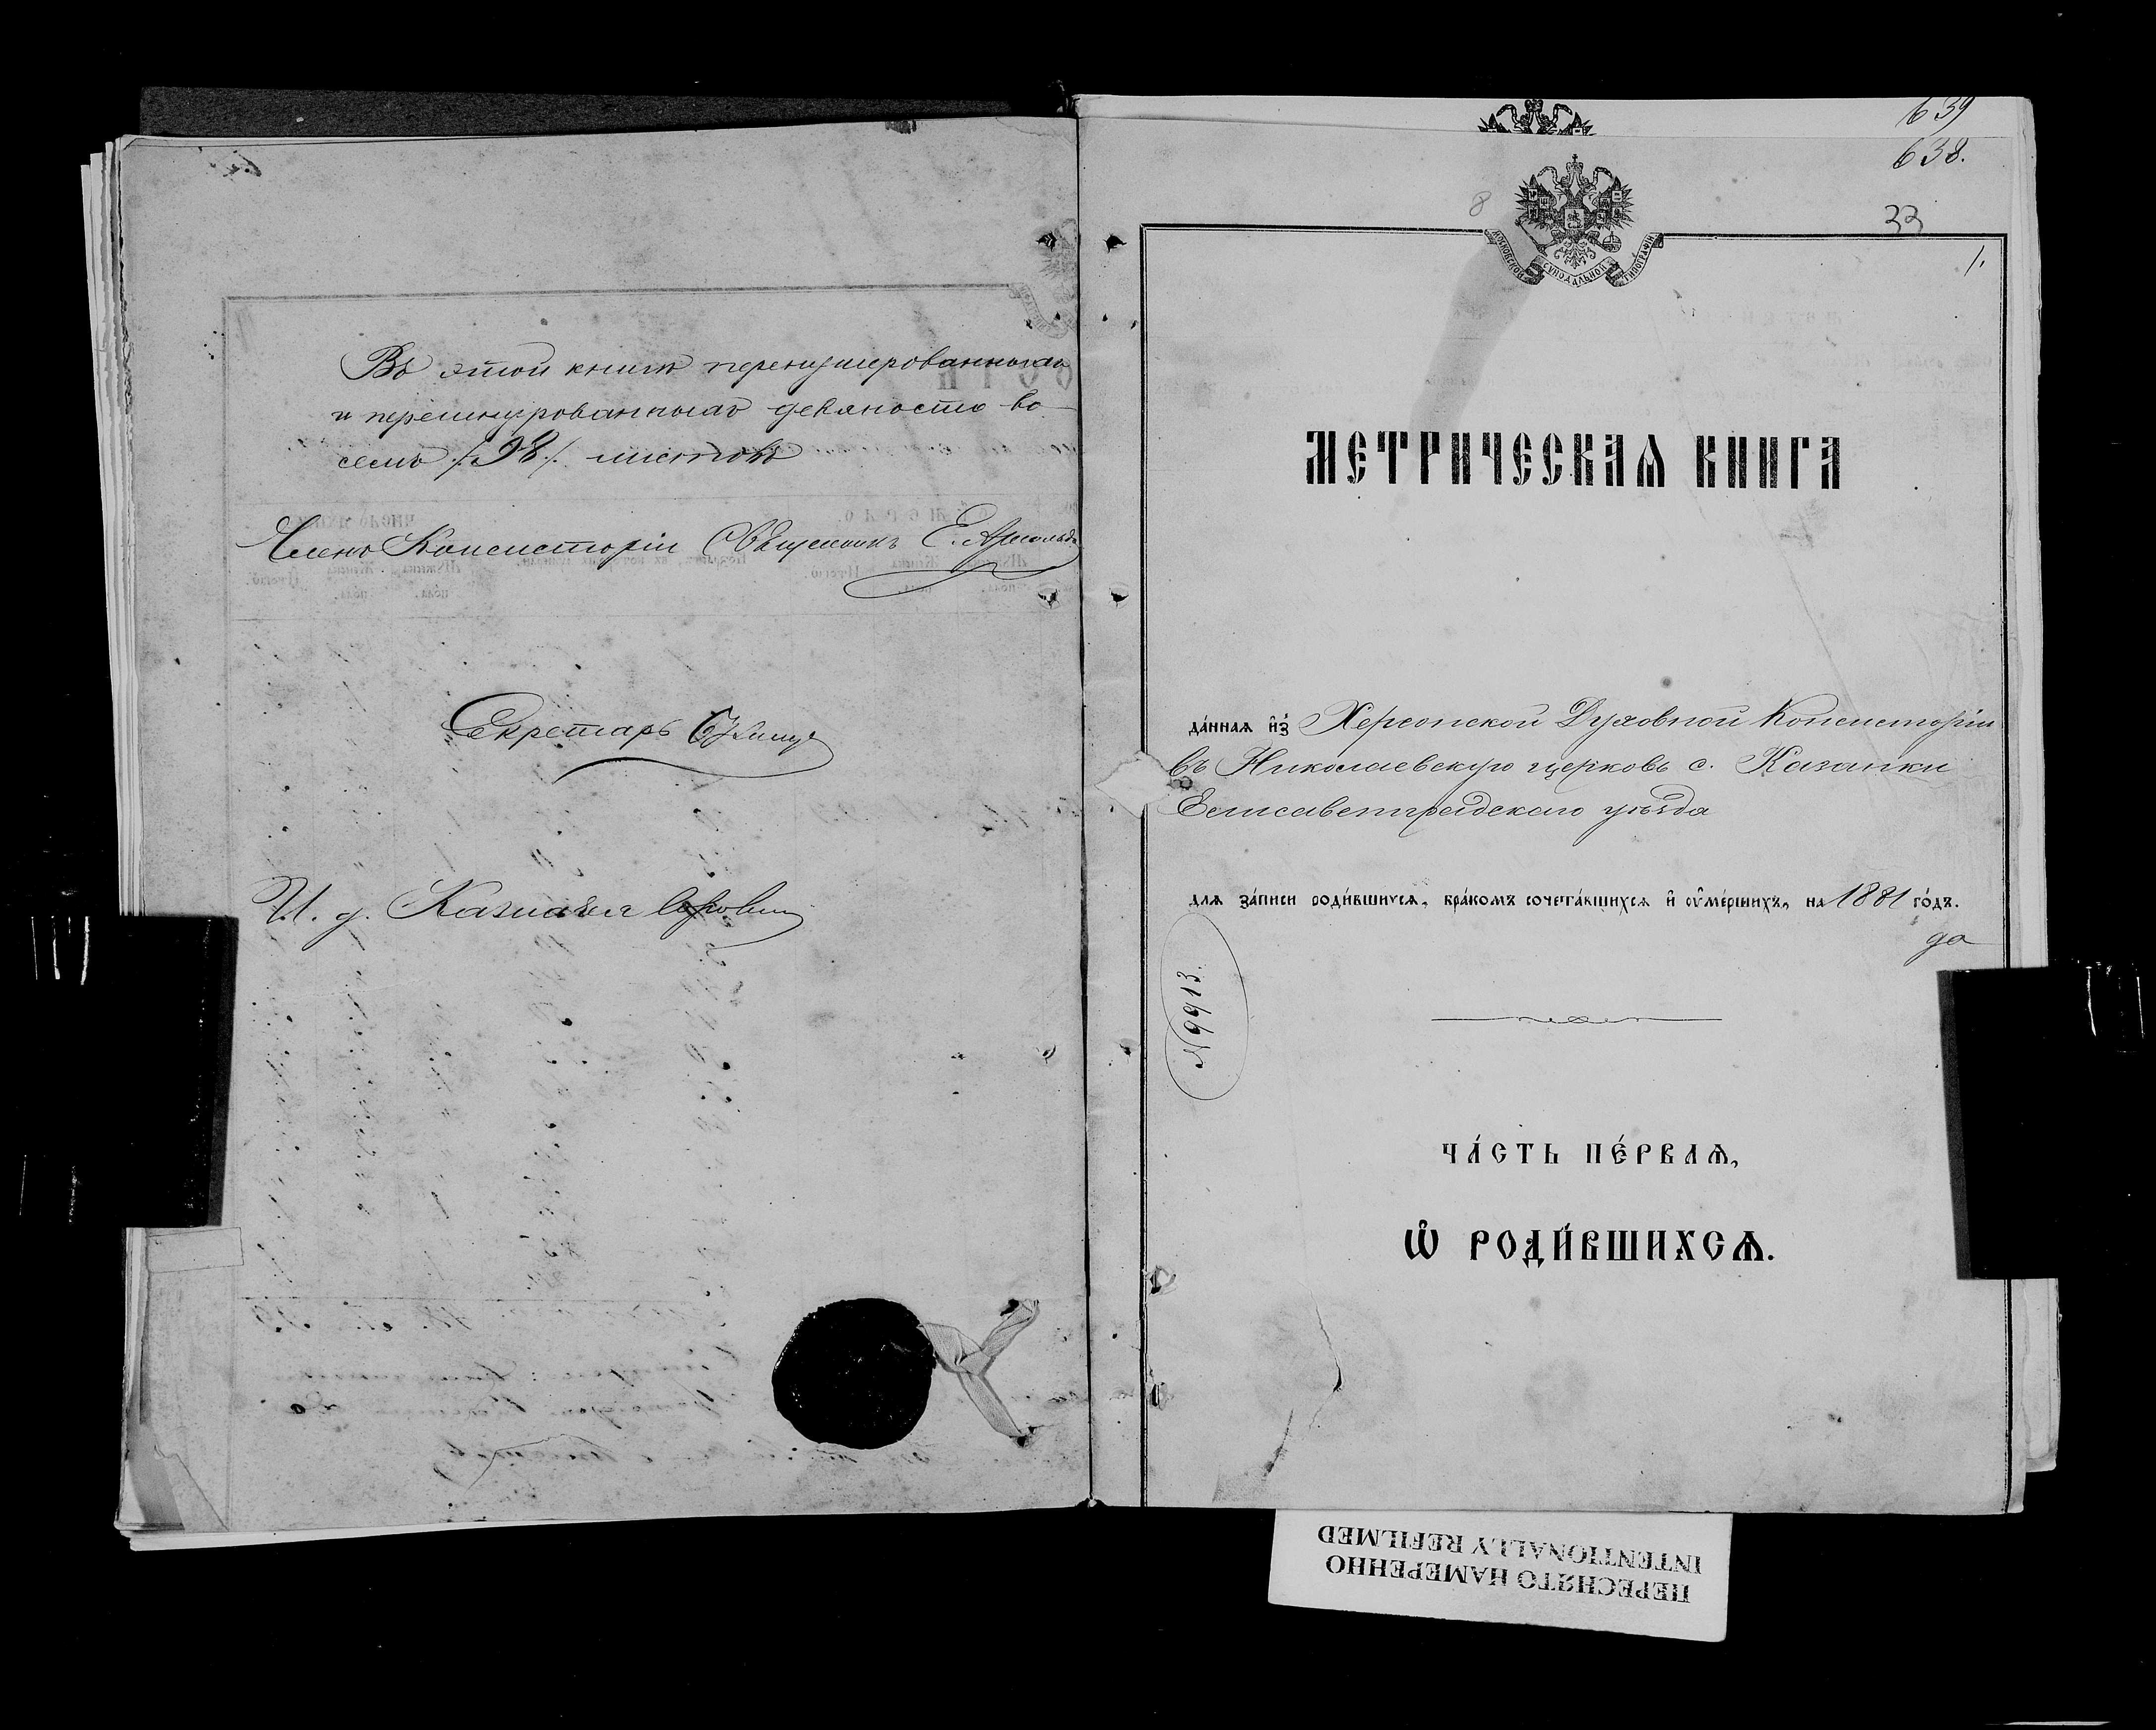 Въ этой книгѣ перенумерованныхъ
и перешнурованныхъ девяносто во-
семь /98/ листовъ
Членъ Консисторіи Священникъ Е. Арнольдъ
Секретарь
И. д. Казначея
639
638.
8
33
1.
МОСКОВСКОЙ СѴНОДАЛЬНОЙ ТИПОГРАФІИ
МЕТРИЧЕСКАѦ КНИГА
да́ннаѧ и҆з̾ Херсонской Духовной Консисторіи
въ Николаевскую церковь с. Казанки
Елисаветградскаго уѣзда
длѧ за́писи роди́вшихсѧ, бра́комъ сочета́вшихсѧ и҆ ᲂу҆ме́ршихъ, на 1881 го́дъ.
да
№ 9913.
ЧА́СТЬ ПЕ́РВАѦ,
Ѡ҆ РОДИ́ВШИХСѦ.
ПЕРЕСНЯТО НАМЕРЕННО
INTENTIONALLY REFILMED